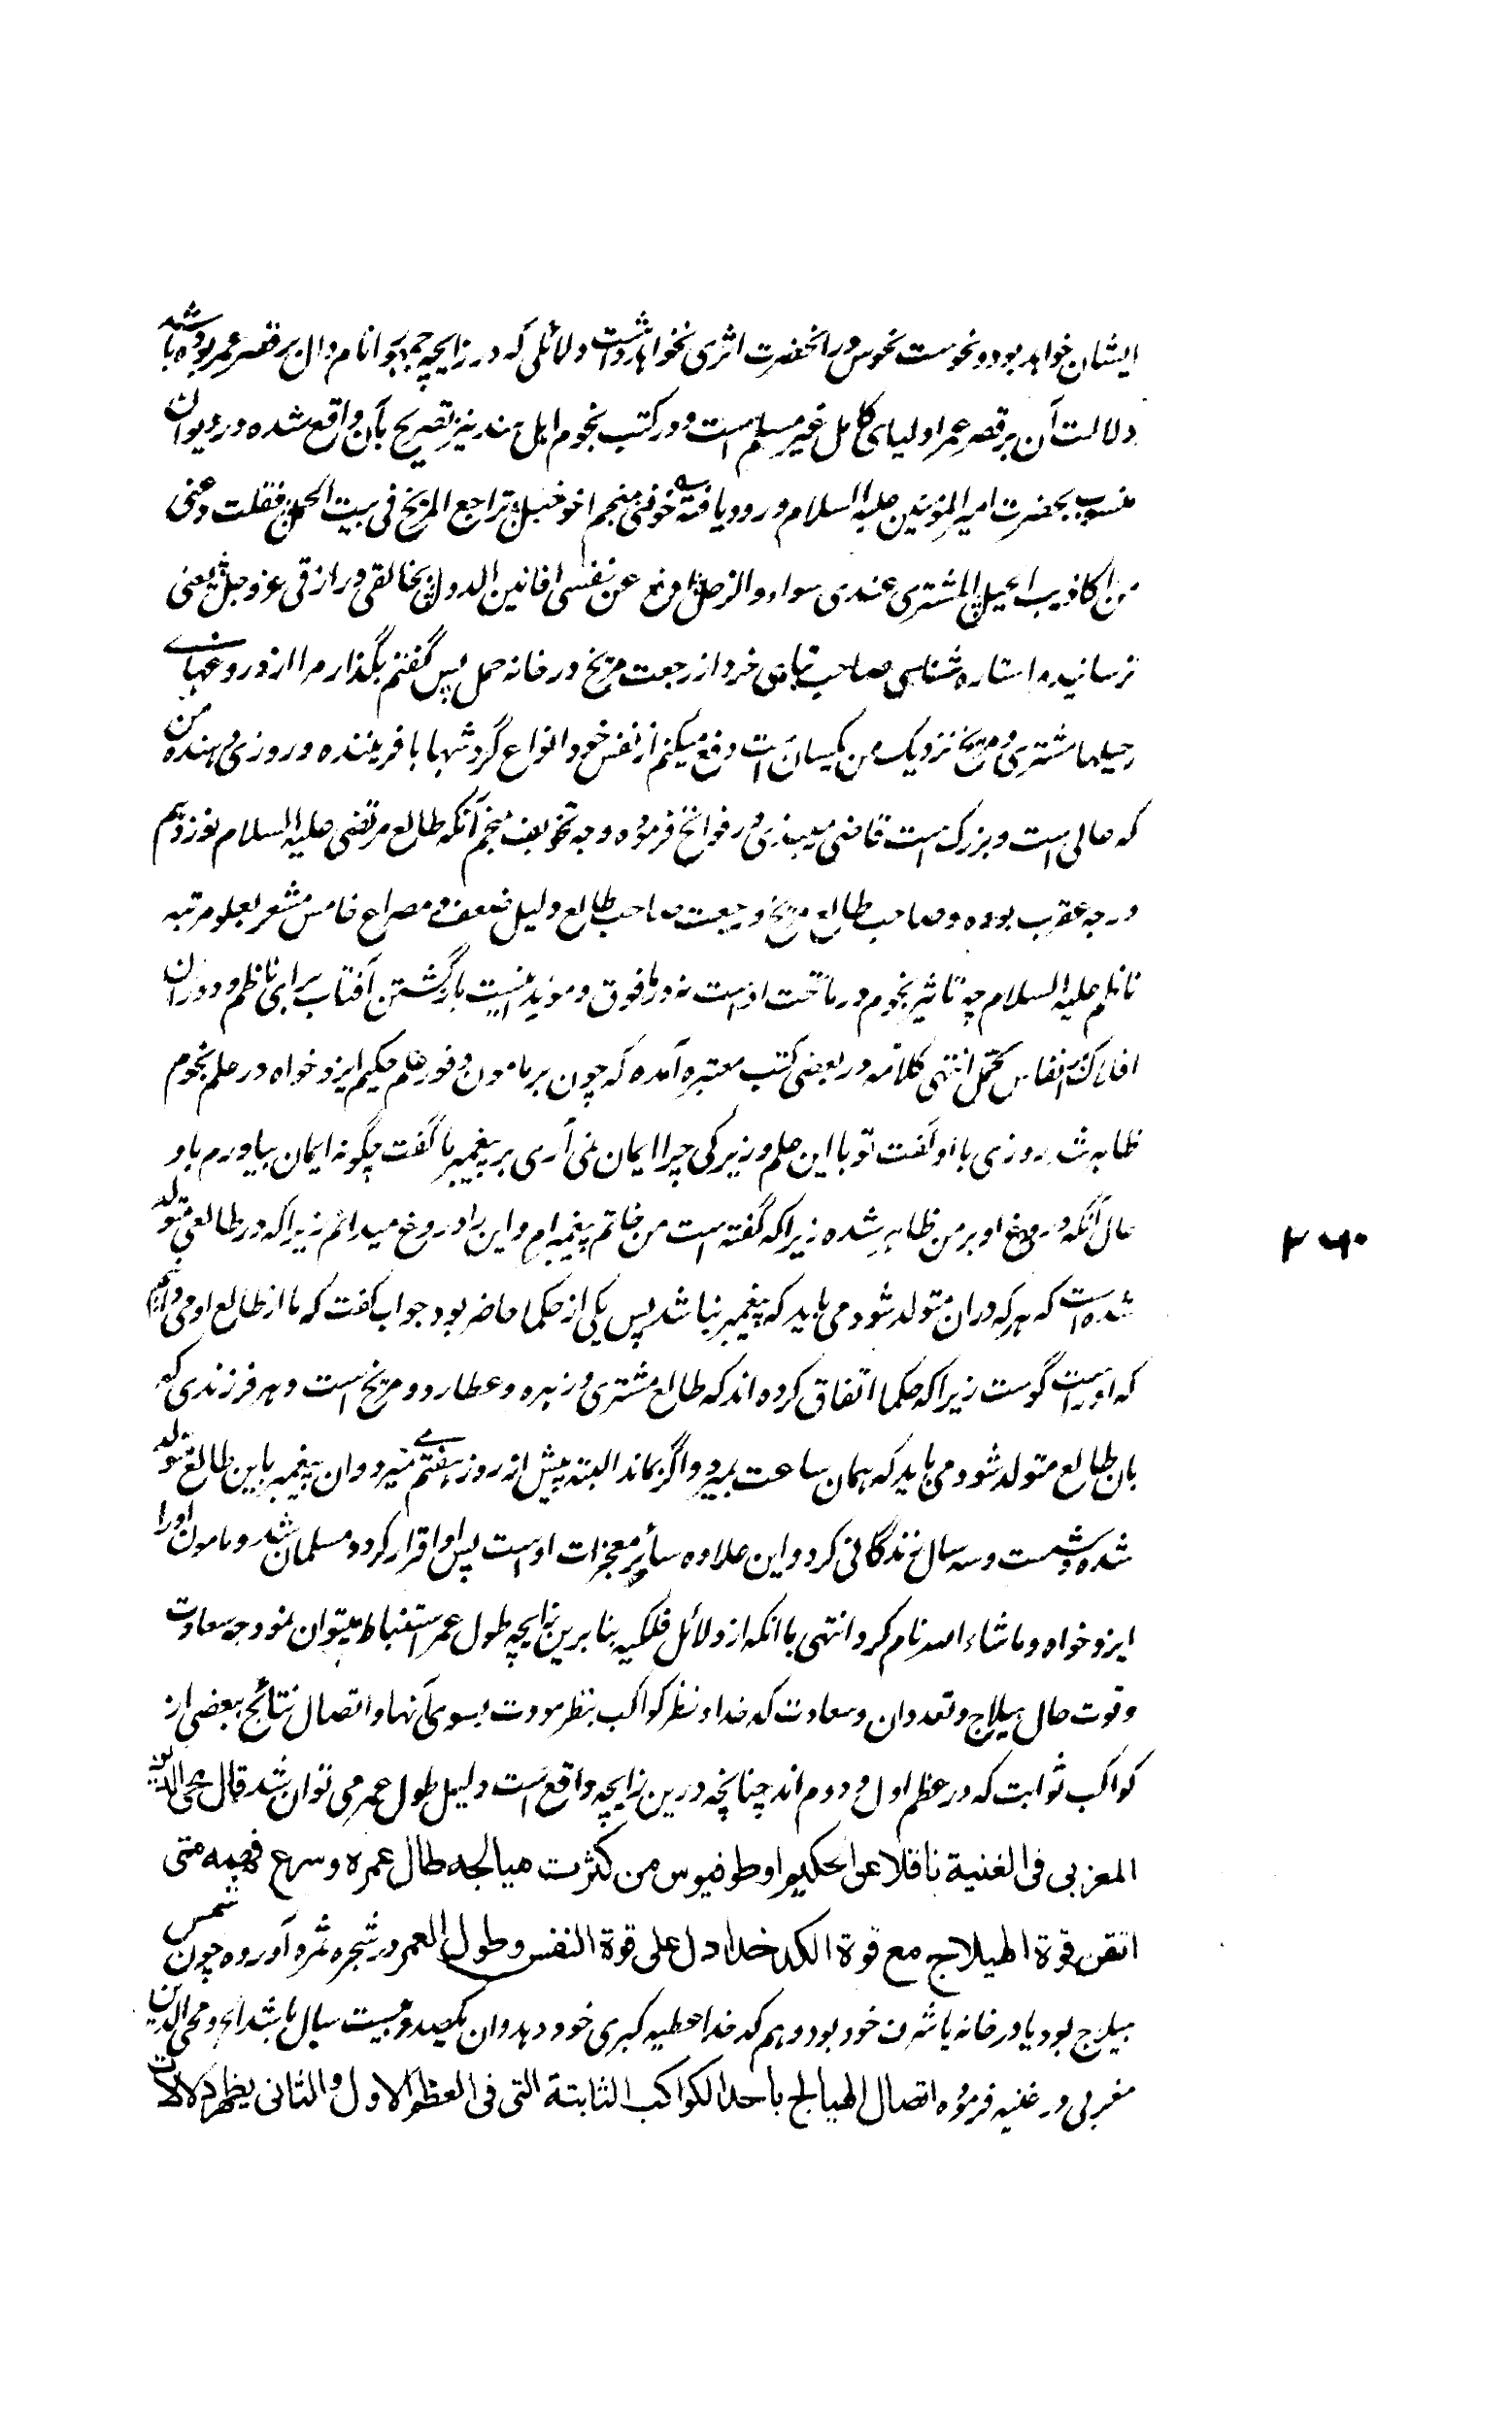 ایشان خواهد بود و نحوست نحوس در آنحضرت اثری نخواهد داشت دلائلی که در زایچه جمهور انام دال بر قصر عمر بوده باشد
دلالت آن بر قصر عمر اولیای کامل غیر مسلم است و در کتب نجوم اهل هند نیز تصریح بآن واقع شده و در دیوان
منسوب بحضرت امیر المؤمنین علیه السلام ورود یافته خوفنی منجم اخو خبل تراجع المریخ فی بیت الحمل فقلت دعنی
من اکاذیب الحیل المشتری عندی سواء و الزحل ادفع عن نفسی افانین الدول بخالقی و رازقی عز و جل یعنی
ترسانید مرا ستاره شناسی صاحب تباهی خرد از رجعت مریخ در خانه حمل پس گفتم بگذار مرا از دروغهای
حیلها مشتری و مریخ نزدیک من یکسان است دفع میکنم از نفس خود انواع گردشها بآفریننده و روزی دهنده من
که عالی است و بزرگ است قاضی میبذی در فواتح فرموده وجه تخویف منجم آنکه طالع مرتضی علیه السلام نوزدهم
درجه عقرب بوده و صاحب طالع مریخ و رجعت صاحب طالع دلیل ضعف و مصراع خامس مشعر بعلو مرتبه
ناظم علیه السلام چه تاثیر نجوم در ماتحت اوست نه در مافوق و موید اینست بازگشتن آفتاب برای ناظم و دوران
افلاک بر انفاس مکمل انتهی کلامه و در بعضی کتب معتبره آمده که چون بر مامون وفور علم حکیم ایزد خواه در علم نجوم
ظاهر شد روزی با او گفت تو با این علم و زیرکی چرا ایمان نمی آری بر پیغمبر ما گفت چگونه ایمان بیاورم باو
حال آنکه دروغ او بر من ظاهر شده زیرا که گفته است من خاتم پیغمبرام و این را دروغ میدانم زیرا که در طالعی متولد
شده است که هر که دران متولد شود می باید که پیغمبر نباشد پس یکی از حکما حاضر بود جواب گفت که ما از طالع او می دانیم
که او راست گوست زیرا که حکما اتفاق کرده اند که طالع مشتری و زهره و عطارد و مریخ است و هر فرزندی که
بان طالع متولد شود می باید که همان ساعت بمیرد و اگر بماند البته پیش از روز هفتم میرد و ان پیغمبر باین طالع متولد
شده و شصت و سه سال زندگانی کرد و این علاوه سایر معجزات اوست پس او اقرار کرد و مسلمان شد و مامون او را
ایزد خواه و ماشاء الله نام کرد انتهی با آنکه از دلائل فلکیه بنا برین زایچه طول عمر استنباط میتوان نمود چه سعادت
و قوت حال هیلاج و تعدد ان و سعادت کدخدا و نظر کواکب بنظر مودت بسوی آنها و اتصال نتائج ببعضی از
کواکب ثوابت که در عظم اول و دوم اند چنانچه درین زایچه واقع است دلیل طول عمر می توان شد قال محی الدین
المغربی فی الغنیة ناقلا عن الحکیم اوطوفیوس من کثرت هیالجه طال عمره و سرع فهمه متی
اتفق قوة الهیلاج مع قوة الکدخدا دل علی قوة النفس و طول العمر در شجره ثمره آورده چون شمس
هیلاج بود یا در خانه یا شرف خود بود و هم کدخدا عطیه کبری خود دهد وان یکصد و بیست سال باشد آه و محی الدین
مغربی در غنیه فرموده اتصال الهیالج باحد الکواکب الثابتة التی فی العظم الاول و الثانی یظهر دلالات
۲۶۰